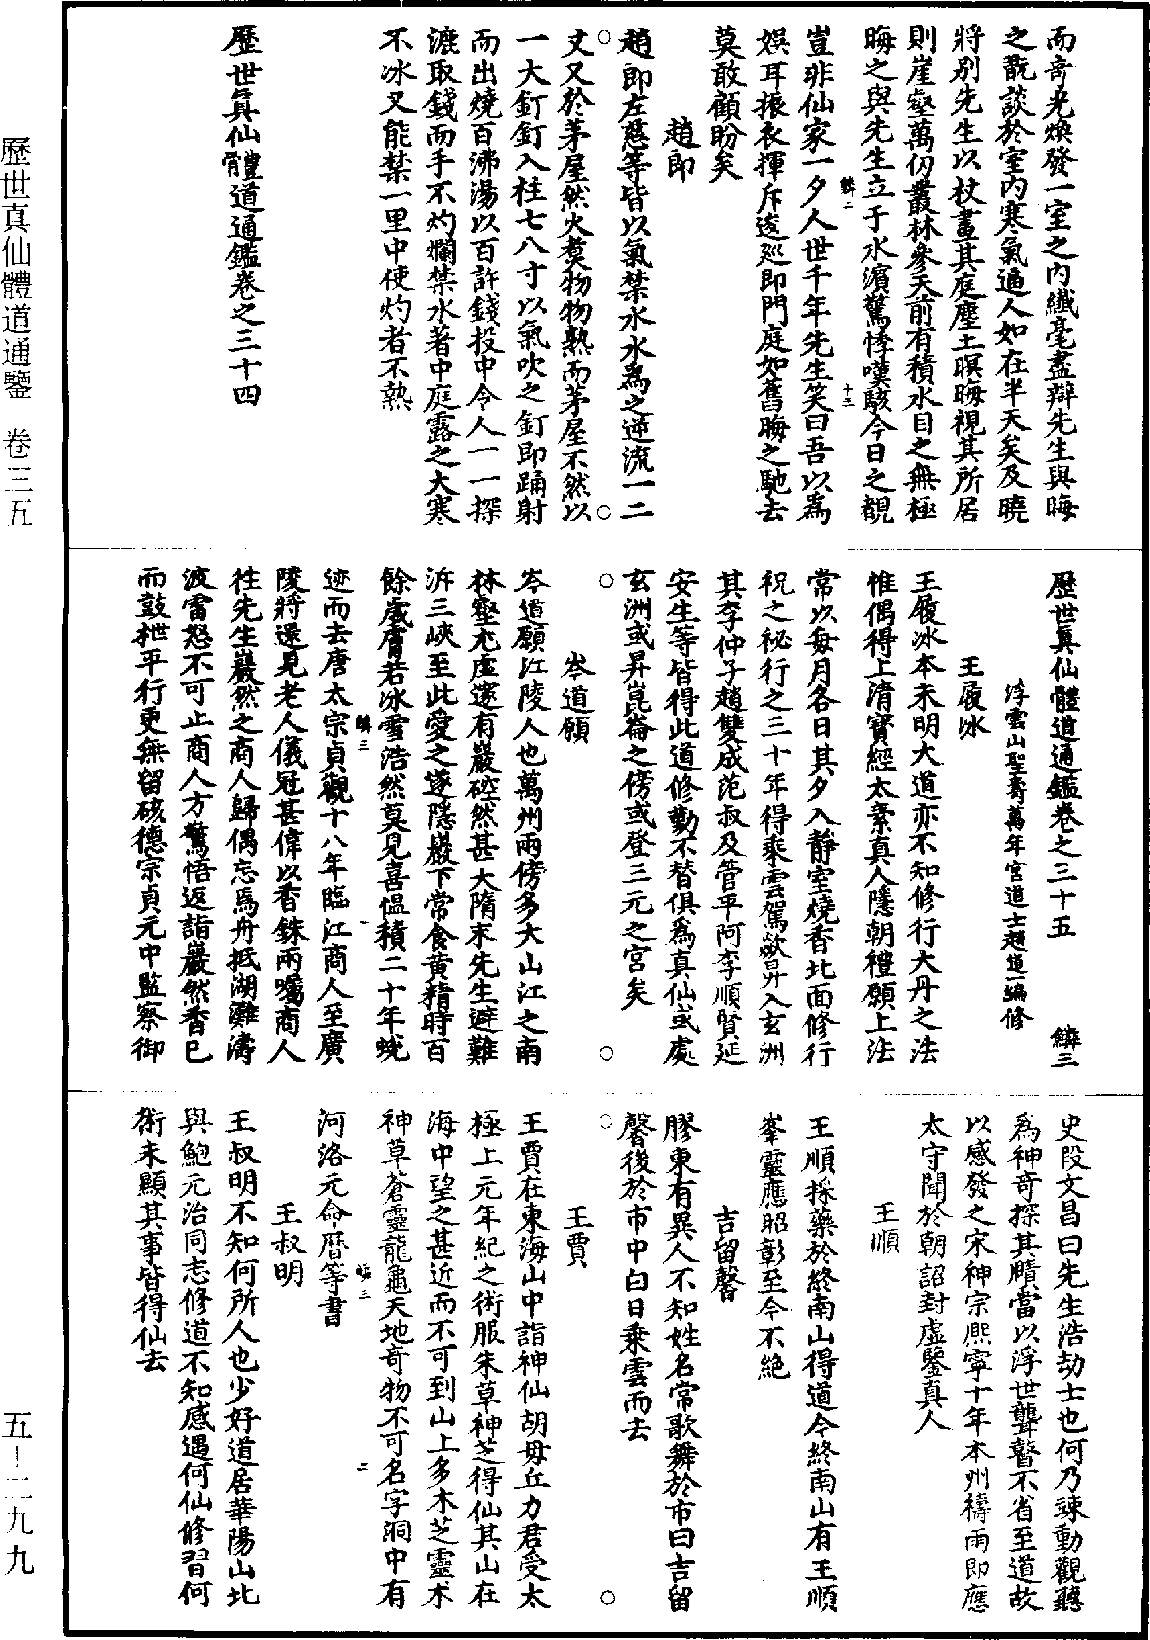 而奇光煥發一室之內纖毫盡辯先生與晦
之翫談於室內寒氣逼人如在半天矣及曉
將別先生以杖畫其庭塵土暝晦視其所居
則崖壑萬仞叢林參天前有積水目之無極
晦之與先生立于水濱驚悸嘆駭今日之覩
鱗二 十三
豈非仙家一夕人世千年先生笑曰吾以為
娛耳振衣揮斥逡巡即門庭如舊晦之馳去
莫敢顧盼矣
趙即
趙即左慈等皆以氣禁水水為之逆流一二
丈又於茅屋然火煑物物熟而茅屋不然以
一大釘釘入柱七八寸以氣吹之釘即踊射
而出燒百沸湯以百許錢投中令人一一探
漉取錢而手不灼爛禁水著中庭露之大寒
不冰又能禁一里中使灼者不熟
歷世真仙體道通鑑卷之三十四
歷世真仙體道通鑑卷之三十五 鱗三
浮雲山聖壽萬年宮道士趙道一編修
王履冰
王履冰本未明大道亦不知修行大丹之法
惟偶得上清寶經太素真人隱朝禮願上法
常以每月各日其夕入靜室燒香北面修行
祝之祕行之三十年得乘雲駕歘昇入玄洲
其李仲子趙雙成范叔及管平阿李順賢延
安生等皆得此道修勤不替俱為真仙或處
玄洲或昇崑崙之傍或登三元之宮矣
岑道願
岑道願江陵人也萬州兩傍多大山江之南
林壑尤虛邃有巖硿然甚大隋末先生避難
泝三峽至此愛之遂隱巖下常食黃精時百
餘歲膚若冰雪浩然莫見喜慍積二十年蛻
鱗三 一
迹而去唐太宗貞觀十八年臨江商人至廣
陵將還見老人儀冠甚偉以香銖兩囑商人
往先生巖然之商人歸偶忘焉舟抵湖灘濤
波雷怒不可止商人方驚悟返詣巖然香已
而鼓枻平行更無留礙德宗貞元中監察御
史段文昌曰先生浩劫士也何乃竦動觀聽
為神奇探其賾當以浮世聾瞽不省至道故
以感發之宋神宗熈寧十年本州禱雨即應
太守聞於朝詔封虛鑒真人
王順
王順採藥於終南山得道今終南山有王順
峯靈應昭彰至今不絕
吉留馨
膠東有異人不知姓名常歌舞於市曰吉留
馨後於市中白日乘雲而去
王賈
王賈在東海山中詣神仙胡毋丘力君受太
極上元年紀之術服朱草神芝得仙其山在
海中望之甚近而不可到山上多木芝靈朮
神草蒼靈龍龜天地奇物不可名字洞中有
鱗三 二
河洛元命曆等書
王叔明
王叔明不知何所人也少好道居華陽山北
與鮑元治同志修道不知感遇何仙修習何
術未顯其事皆得仙去
歷世真仙體道通鑒 卷三五
五－二九九